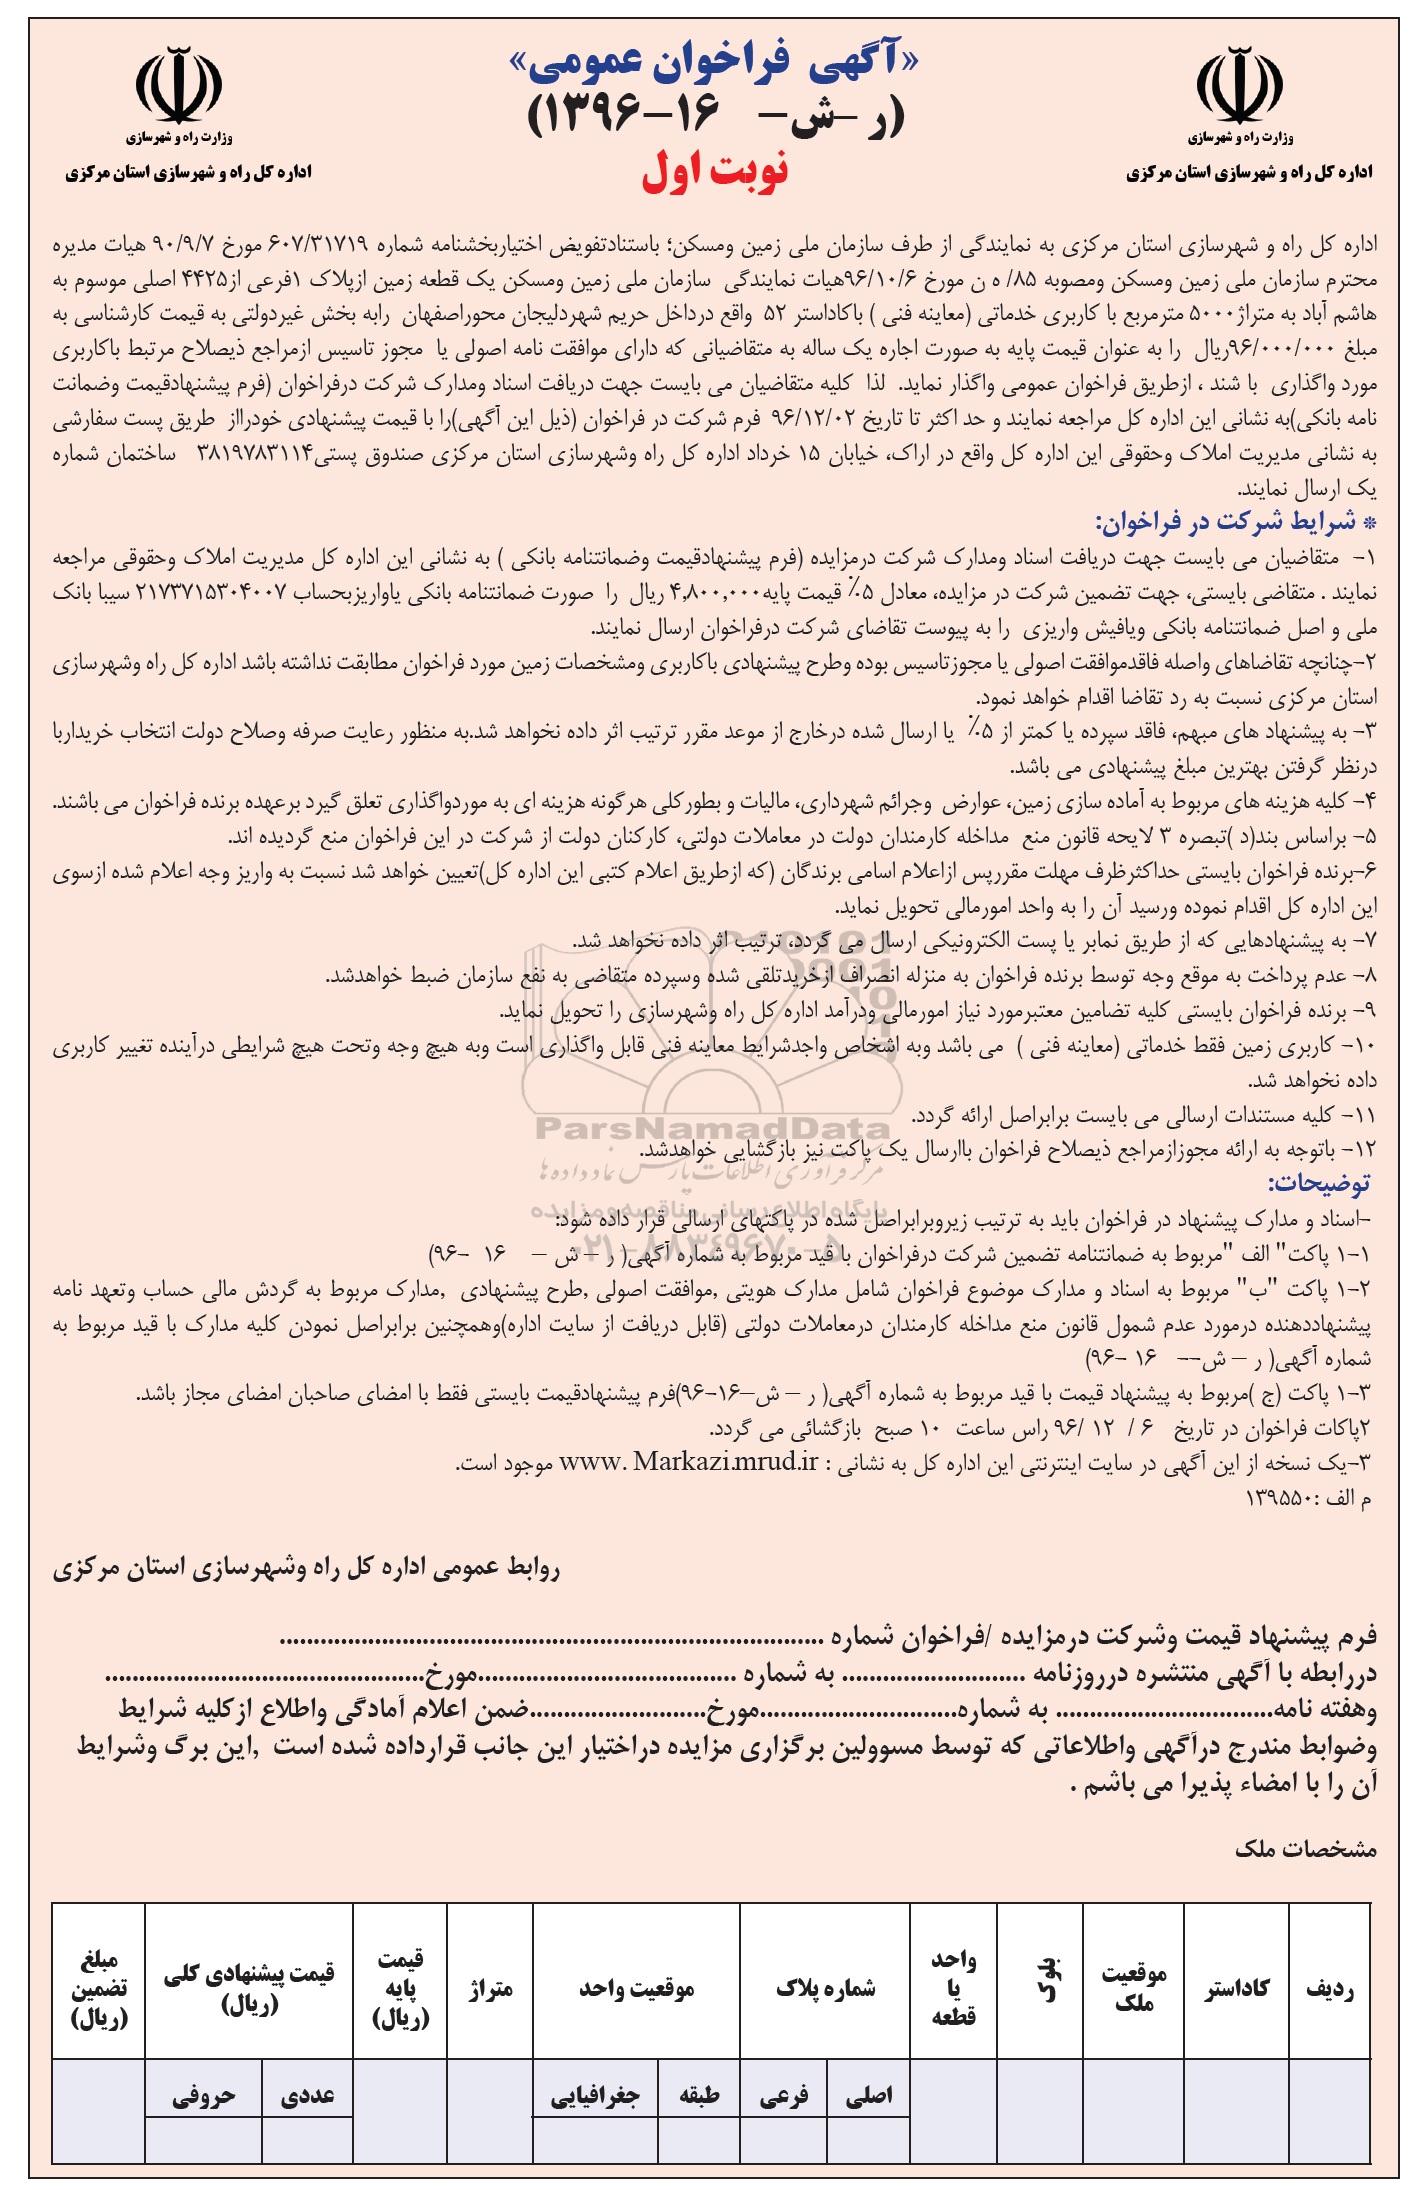 «آگهی فراخوان عمومی»
(ر –ش– ۱۶–۱۳۹۶)
نوبت اول
وزارت راه و شهرسازی
اداره کل راه و شهرسازی استان مرکزی
وزارت راه و شهرسازی
اداره کل راه و شهرسازی استان مرکزی
اداره کل راه و شهرسازی استان مرکزی به نمایندگی از طرف سازمان ملی زمین ومسکن؛ باستنادتفویض اختیاربخشنامه شماره ۶۰۷/۳۱۷۱۹ مورخ ۹۰/۹/۷ هیات مدیره
محترم سازمان ملی زمین ومسکن ومصوبه ۸۵/ ه ن مورخ ۹۶/۱۰/۶هیات نمایندگی سازمان ملی زمین ومسکن یک قطعه زمین ازپلاک ۱فرعی از۴۴۲۵ اصلی موسوم به
هاشم آباد به متراژ۵۰۰۰ مترمربع با کاربری خدماتی (معاینه فنی ) باکاداستر ۵۲ واقع درداخل حریم شهردلیجان محوراصفهان رابه بخش غیردولتی به قیمت کارشناسی به
مبلغ ۹۶/۰۰۰/۰۰۰ریال را به عنوان قیمت پایه به صورت اجاره یک ساله به متقاضیانی که دارای موافقت نامه اصولی یا مجوز تاسیس ازمراجع ذیصلاح مرتبط باکاربری
مورد واگذاری با شند ، ازطریق فراخوان عمومی واگذار نماید. لذا کلیه متقاضیان می بایست جهت دریافت اسناد ومدارک شرکت درفراخوان (فرم پیشنهادقیمت وضمانت
نامه بانکی)به نشانی این اداره کل مراجعه نمایند و حد اکثر تا تاریخ ۹۶/۱۲/۰۲ فرم شرکت در فراخوان (ذیل این آگهی)را با قیمت پیشنهادی خودرااز طریق پست سفارشی
به نشانی مدیریت املاک وحقوقی این اداره کل واقع در اراک، خیابان ۱۵ خرداد اداره کل راه وشهرسازی استان مرکزی صندوق پستی۳۸۱۹۷۸۳۱۱۴ ساختمان شماره
یک ارسال نمایند.
* شرایط شرکت در فراخوان:
۱– متقاضیان می بایست جهت دریافت اسناد ومدارک شرکت درمزایده (فرم پیشنهادقیمت وضمانتنامه بانکی ) به نشانی این اداره کل مدیریت املاک وحقوقی مراجعه
نمایند . متقاضی بایستی، جهت تضمین شرکت در مزایده، معادل ۵٪ قیمت پایه۴,۸۰۰,۰۰۰ ریال را صورت ضمانتنامه بانکی یاواریزبحساب ۲۱۷۳۷۱۵۳۰۴۰۰۷ سیبا بانک
ملی و اصل ضمانتنامه بانکی ویافیش واریزی را به پیوست تقاضای شرکت درفراخوان ارسال نمایند.
۲–چنانچه تقاضاهای واصله فاقدموافقت اصولی یا مجوزتاسیس بوده وطرح پیشنهادی باکاربری ومشخصات زمین مورد فراخوان مطابقت نداشته باشد اداره کل راه وشهرسازی
استان مرکزی نسبت به رد تقاضا اقدام خواهد نمود.
۳– به پیشنهاد های مبهم، فاقد سپرده یا کمتر از ۵٪ یا ارسال شده درخارج از موعد مقرر ترتیب اثر داده نخواهد شد.به منظور رعایت صرفه وصلاح دولت انتخاب خریداربا
درنظر گرفتن بهترین مبلغ پیشنهادی می باشد.
۴– کلیه هزینه های مربوط به آماده سازی زمین، عوارض وجرائم شهرداری، مالیات و بطورکلی هرگونه هزینه ای به موردواگذاری تعلق گیرد برعهده برنده فراخوان می باشند.
۵– براساس بند(د )تبصره ۳ لایحه قانون منع مداخله کارمندان دولت در معاملات دولتی، کارکنان دولت از شرکت در این فراخوان منع گردیده اند.
۶–برنده فراخوان بایستی حداکثرظرف مهلت مقررپس ازاعلام اسامی برندگان (که ازطریق اعلام کتبی این اداره کل)تعیین خواهد شد نسبت به واریز وجه اعلام شده ازسوی
این اداره کل اقدام نموده ورسید آن را به واحد امورمالی تحویل نماید.
۷– به پیشنهادهایی که از طریق نمابر یا پست الکترونیکی ارسال می گردد، ترتیب اثر داده نخواهد شد.
۸– عدم پرداخت به موقع وجه توسط برنده فراخوان به منزله انصراف ازخریدتلقی شده وسپرده متقاضی به نفع سازمان ضبط خواهدشد.
۹– برنده فراخوان بایستی کلیه تضامین معتبرمورد نیاز امورمالی ودرآمد اداره کل راه وشهرسازی را تحویل نماید.
۱۰– کاربری زمین فقط خدماتی (معاینه فنی ) می باشد وبه اشخاص واجدشرایط معاینه فنی قابل واگذاری است وبه هیچ وجه وتحت هیچ شرایطی درآینده تغییر کاربری
داده نخواهد شد.
۱۱– کلیه مستندات ارسالی می بایست برابراصل ارائه گردد.
ParsNamadData
۱۲– باتوجه به ارائه مجوزازمراجع ذیصلاح فراخوان باارسال یک پاکت نیز بازگشایی خواهدشد.
مرکز فرآوری اطلاعات پارس نماد داده ها
توضیحات:
پایگاه اطلاع رسانی مناقصه و مزایده
–اسناد و مدارک پیشنهاد در فراخوان باید به ترتیب زیروبرابراصل شده در پاکتهای ارسالی قرار داده شود:
۰۲۱–۸۸۳۴۹۶۷۰–۵
۱–۱ پاکت" الف "مربوط به ضمانتنامه تضمین شرکت درفراخوان با قید مربوط به شماره آگهی( ر – ش – ۱۶ –۹۶)
۱–۲ پاکت "ب" مربوط به اسناد و مدارک موضوع فراخوان شامل مدارک هویتی ,موافقت اصولی ,طرح پیشنهادی ,مدارک مربوط به گردش مالی حساب وتعهد نامه
پیشنهاددهنده درمورد عدم شمول قانون منع مداخله کارمندان درمعاملات دولتی (قابل دریافت از سایت اداره)وهمچنین برابراصل نمودن کلیه مدارک با قید مربوط به
شماره آگهی( ر – ش–– ۱۶ –۹۶)
۱–۳ پاکت (ج )مربوط به پیشنهاد قیمت با قید مربوط به شماره آگهی( ر – ش–۱۶–۹۶)فرم پیشنهادقیمت بایستی فقط با امضای صاحبان امضای مجاز باشد.
۲پاکات فراخوان در تاریخ ۶ / ۱۲ /۹۶ راس ساعت ۱۰ صبح بازگشائی می گردد.
۳–یک نسخه از این آگهی در سایت اینترنتی این اداره کل به نشانی : www. Markazi.mrud.ir موجود است.
م الف :۱۳۹۵۵۰
روابط عمومی اداره کل راه وشهرسازی استان مرکزی
فرم پیشنهاد قیمت وشرکت درمزایده /فراخوان شماره ................................................................................
دررابطه با آگهی منتشره درروزنامه ........................... به شماره ......................................مورخ...............................................
وهفته نامه................................ به شماره.............................مورخ..........................ضمن اعلام آمادگی واطلاع ازکلیه شرایط
وضوابط مندرج درآگهی واطلاعاتی که توسط مسوولین برگزاری مزایده دراختیار این جانب قرارداده شده است ,این برگ وشرایط
آن را با امضاء پذیرا می باشم .
مشخصات ملک
ردیف
کاداستر
موقعیت ملک
بلوک
واحد یا قطعه
شماره پلاک
موقعیت واحد
متراژ
قیمت پایه (ریال)
قیمت پیشنهادی کلی (ریال)
مبلغ تضمین (ریال)
اصلی
فرعی
طبقه
جغرافیایی
عددی
حروفی